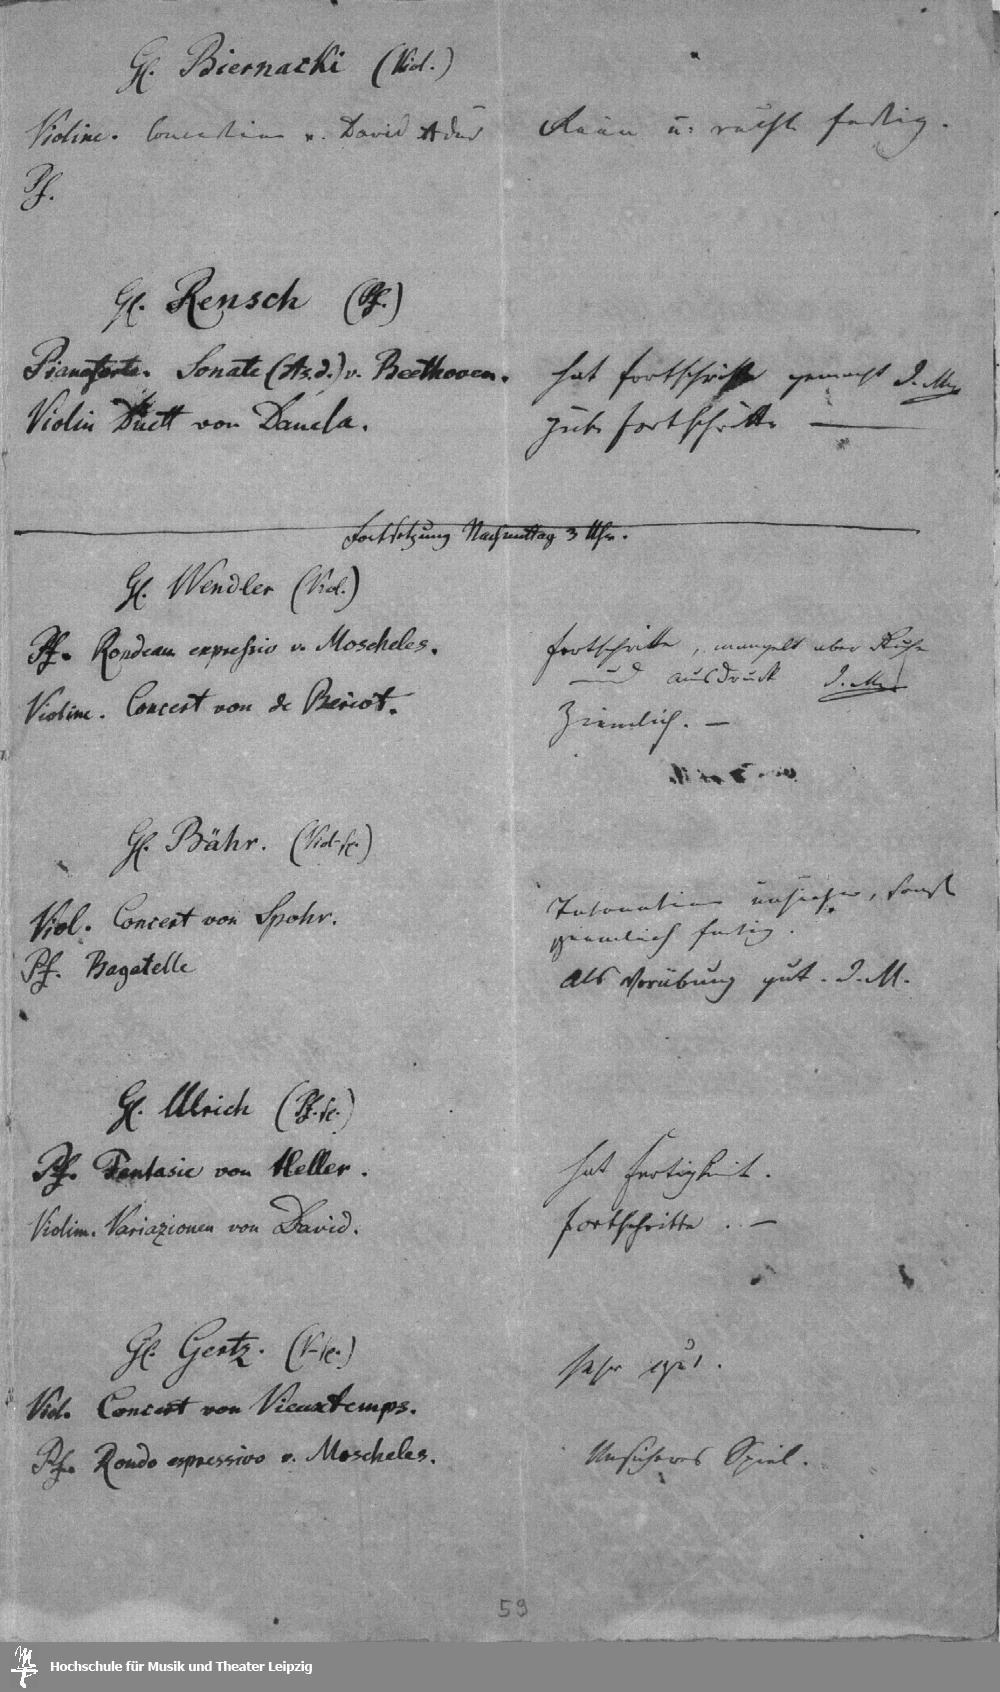 H. Biernacki (Viol.)
Violine. Concertino v. David A dur
Rein u: recht fertig.
Pf.
H. Rensch (Pf.)
Pianoforte. Sonate (As.d.) v. Beethoven.
hat Fortschritte gemacht I. M.
Violin Duett von Dancla.
gute Fortschritte —
Fortsetzung Nachmittag 3 Uhr.
H. Wendler (Viol.)
Pf. Rondeau expressio v. Moscheles.
Fortschritte, mangelt aber Ruhe
und Ausdruck I. M.
Violine. Concert von de Beriot.
Ziemlich. —
H. Bähr. (Viol.)
Viol. Concert von Spohr.
Intonation unsicher, sonst
ziemlich fertig.
Pf. Bagatelle
als Vorübung gut. I. M.
H. Ulrich (Pf.)
Pf. Fantasie von Heller.
hat Fertigkeit.
Violin. Variazionen von David.
Fortschritte. —
H. Gertz. (V.)
sehr gut.
Viol. Concert von Vieuxtemps.
Pf. Rondo espressivo v. Moscheles.
Unsicheres Spiel.
59
Hochschule für Musik und Theater Leipzig